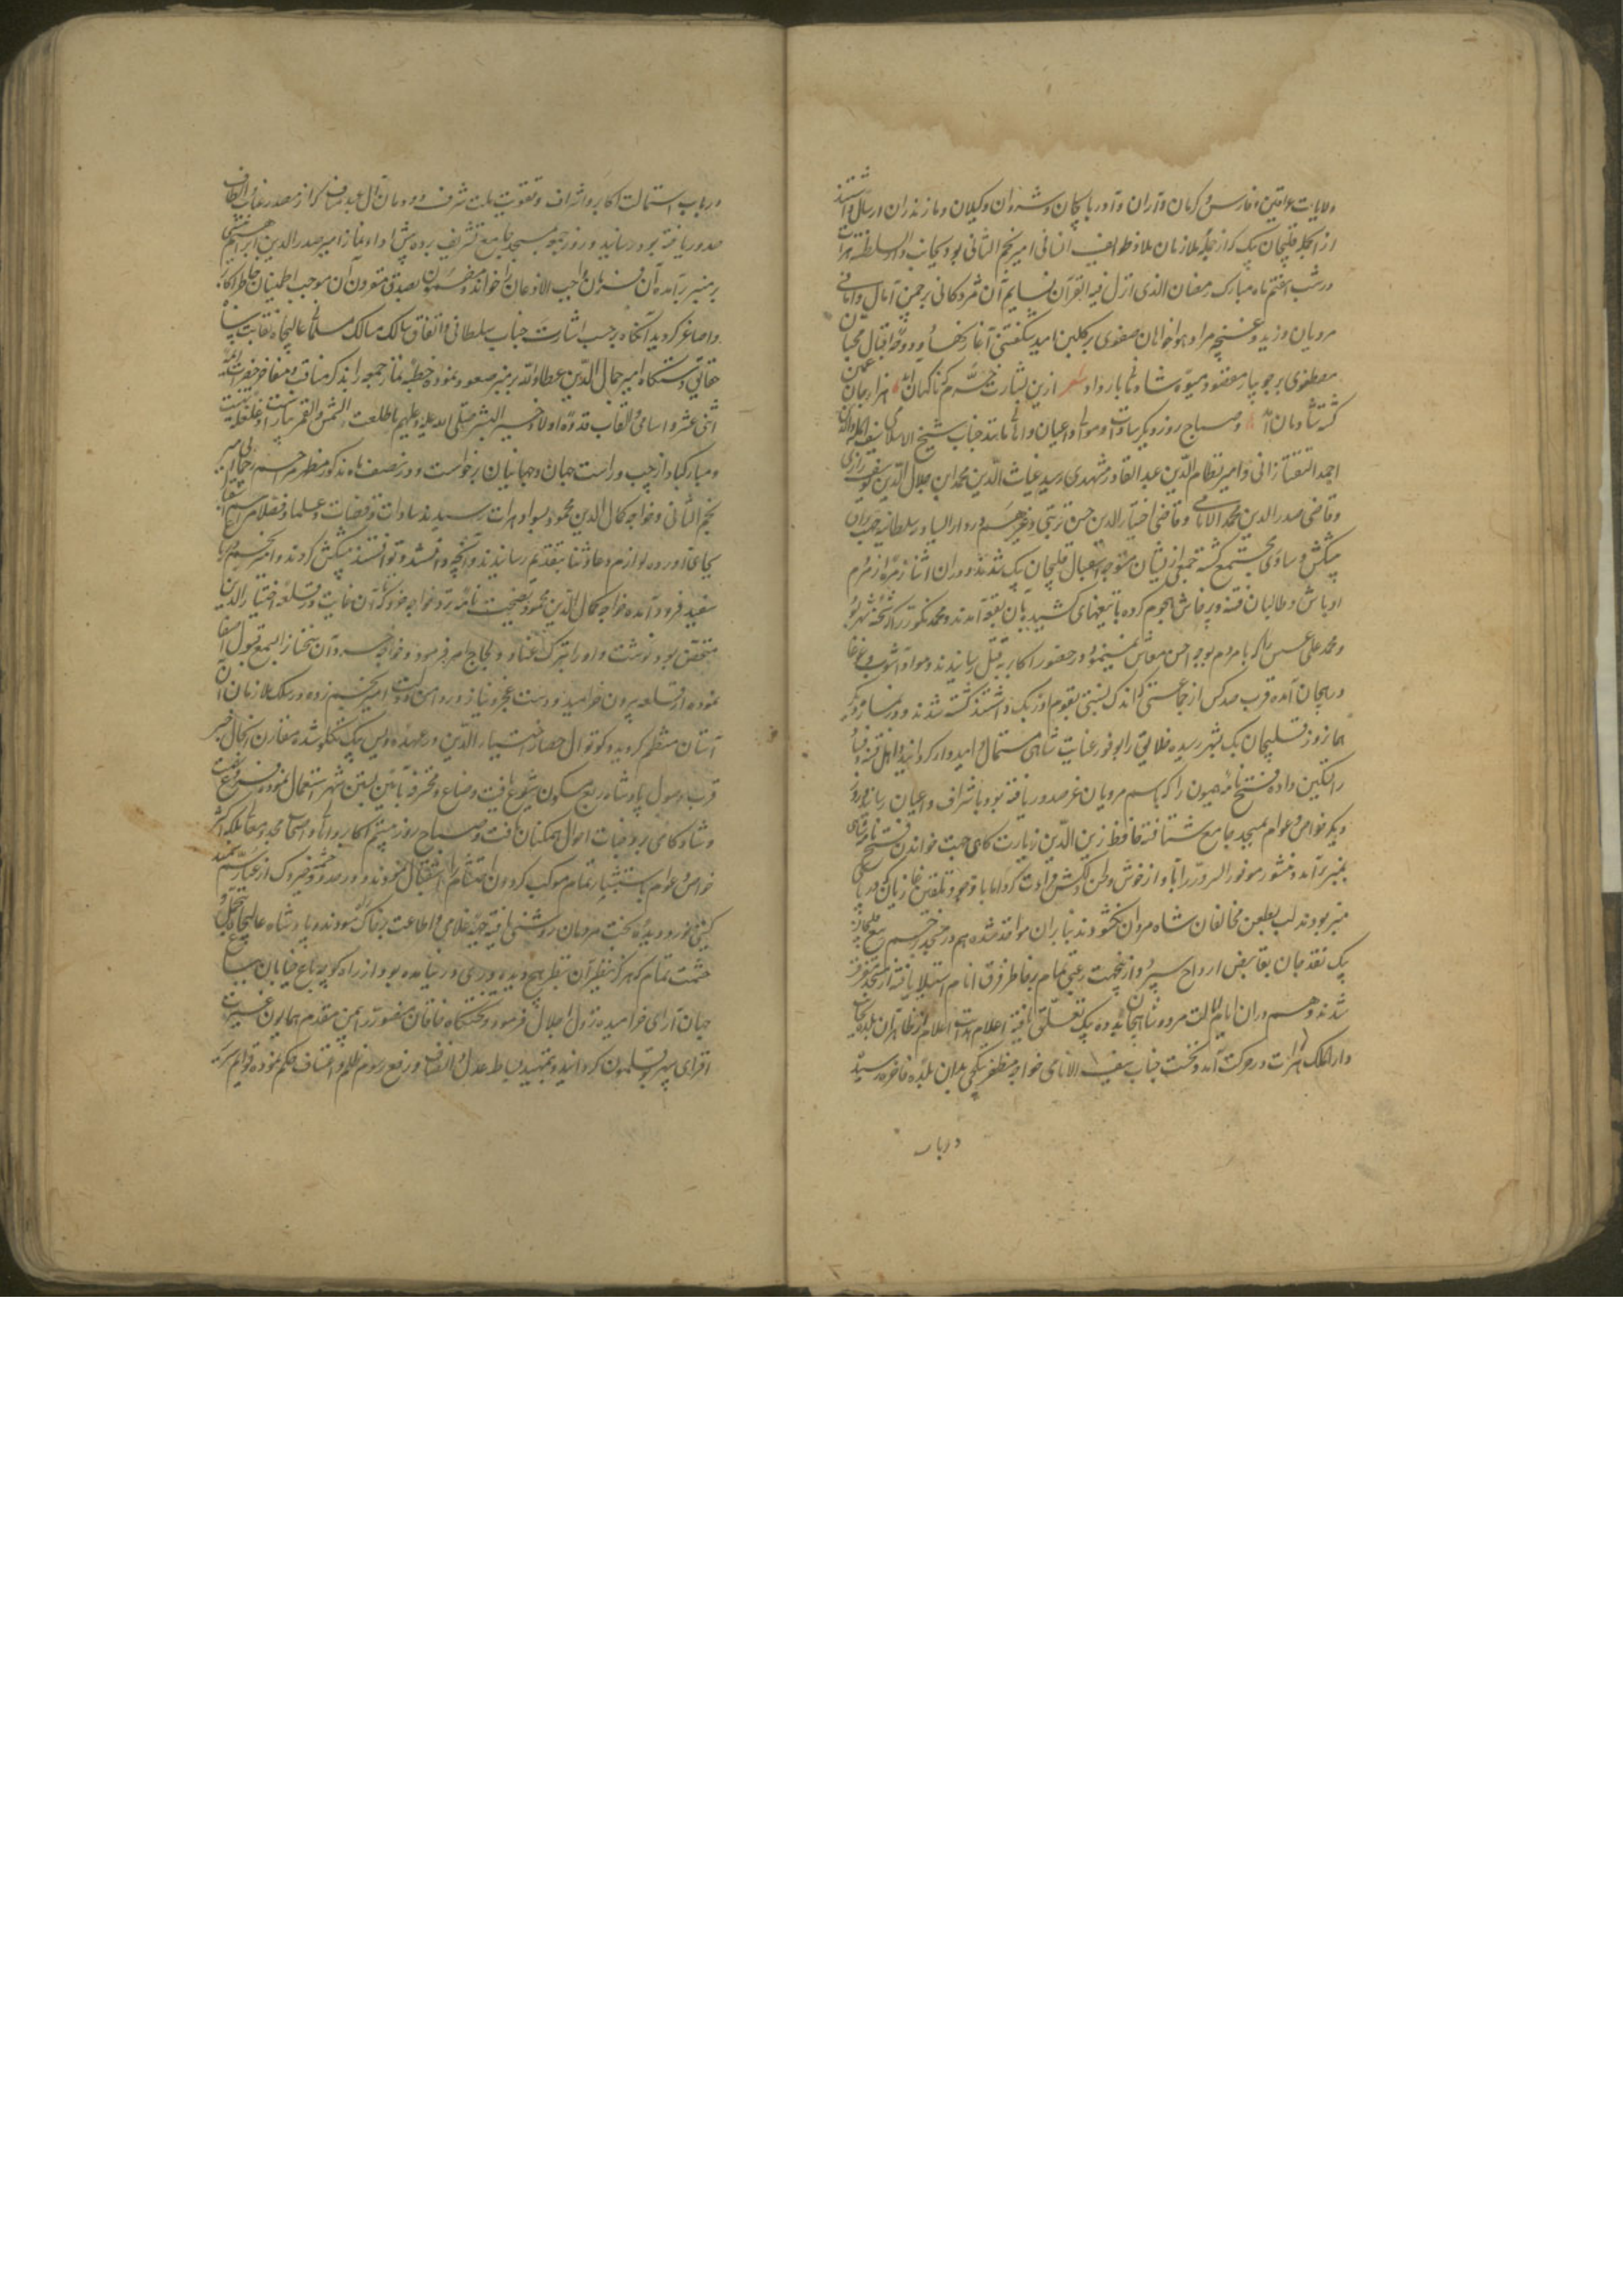 ولایات عراقین و فارس و کرمان و آران و آذربایجان و شروان و گیلان و مازندران ارسال داشتند
از آنجمله قلیجان بیک که از جمله ملازمان امیر نجم الثانی بود بجانب دار السلطنه هرات
در شب هفتم ماه مبارک رمضان الذی انزل فیه القرآن نسایم آن مژدگانی بر چمن آمال و امانی
مرویان وزید و غنچه مراد هواخواهان صفوی بر گلبن امید شکفتن آغاز نهاد و دوحه اقبال محبان
مرتضوی بر جویبار مقصود میوه شادمانی بار داد شعر ازین بشارت خرم که ناگهان آمد هزار جان
گشته شادمان آمد و صباح روز دیگر سادات و موالی و اعیان و اهالی مانند جناب شیخ الاسلامی سیف المله والدین
احمد التفتازانی و امیر نظام الدین عبد القادر مشهدی و سید غیاث الدین محمد ابن جلال الدین یوسف رازی
و قاضی صدر الدین محمد الامامی و قاضی اختیار الدین حسن تربتی و غیرهم در دار السیاده سلطانیه جهت تدبیر
پیشکش و ساوری مجتمع گشته جمعی از ایشان متوجه استقبال قلیجان بیک شدند و در آن اثنا زمره از مردم
اوباش و طالبان فتنه و پرخاش هجوم کرده با تیغهای کشیده بآن بقعه آمدند و محمد لکور را که شحنه شهر بود
و محمد علی عسس را که با مردم بوجه احسن معاش مینمود در حضور اکابر بقتل رسانیدند و مواد آشوب و غوغا
در هیجان آمده قرب صد کس از جماعتی که اندک نسبتی بقوم اوزبک داشتند کشته شدند و در نماز دیگر
همانروز قلیجان بیک بشهر رسیده خلایق را بوفور عنایت شاهی مستمال و امیدوار گردانید و اهل فتنه و فساد
را تسکین داده فتح نامه همیون را که باسم مرویان عز صدور یافته بود باشراف و اعیان رسانید و روز
دیگر خواص و عوام بمسجد جامع شتافته حافظ زین الدین زیارتگاهی جهت خواندن فتح نامه شاهی
بمنبر برآمد و منشور موفور السرور را بآواز خوش و لحن دلکش قرائت کرد اما با وجود تلقین غازیان که در پای
منبر بودند لب بطعن مخالفان شاه مردان نگشود بنابر آن مواخذ شده هم در مسجد بزخم تیغ قلیجان
بیک نقد جان بقابض ارواح سپرد و ازینجهت رعبی تمام بر خاطر فرق انام استیلا یافته از مسجد متفرق
شدند و هم در آن ایام ایالت مرو شاهجهان بدده بیک تعلق یافته اعلام هدایت اعلام از ظاهر آن بلده بجانب
دار الملک هرات در حرکت آمد و نخست جناب سیف الانامی خواجه مظفر بتکچی بدان بلده فاخره رسید
در باب
در باب استمالت اکابر و اشراف و تقویت ملت شرف دودمان آل عبد مناف که از مصدر عنایت و الطاف
صدور یافته بود رسانید و روز جمعه بمسجد جامع تشریف برده پیش از اداء نماز امیر صدر الدین ابراهیم
بر منبر برآمده آن فرمان واجب الاذعان را خواند و مضمون بصدق مقرون آن موجب اطمینان خاطر اکابر
و اصاغر گردید آنگاه برحسب اشارت جناب سلطانی و اتفاق سالک مسالک مسلمانی عالیجاه نقابت پناه
حقایق دستگاه امیر جمال الدین عطاء الله بر منبر صعود نموده خطبه نماز جمعه را بذکر مناقب و مفاخر حضرات ائمه
اثنی عشر و اسامی و القاب قدوه اولاد خیر البشر صلی الله علیه و علیهم ما طلعت الشمس و القمر بیاراست و غلغله تهنیت
و مبارکباد از چپ و راست جهان و جهانیان برخواست و در نصف ماه مذکور مظهر مراحم رحمانی امیر
نجم الثانی و خواجه کمال الدین محمود بسواد هرات رسیدند سادات و قضات و علما و فضلا مراسم استقبال
بجای آورده لوازم دعا و ثنا بتقدیم رسانیدند و آنچه داشتند و توانستند پیشکش کردند و امیر نجم در باغ
سفید فرود آمده خواجه کمال الدین محمود نصیحت نامه بدو خواجه خرد که در آن غایت در قلعه اختیار الدین
متحصن بود نوشت و او را بترک عناد و لجاج امر فرمود و خواجه خرد آن سخنان را بسمع قبول اصغا
نموده از قلعه بیرون خرامید و دست عجز و نیاز در دامن دولت امیر نجم زده در سلک ملازمان آن
آستان منتظم گردید و کوتوالی حصار اختیار الدین در عهده اویس بیک تکلو شده مقارن آنحال خبر
قرب وصول پادشاه ربع مسکون شیوع یافت و صناع و محترفه بآئین بستن شهر اشتغال نموده فروغ بهجت
و شادکامی بر وجنات احوال همگنان تافت و صباح روز بیستم اکابر و اهالی و اصحاب مجد و معالی بلکه اکثر
خواص و عوام باستبشار تمام موکب گردون احتشام را استقبال نمودند و در حدود خیروک از غبار سم سمند
گیتی نورد دیده بخت مردمان روشنی یافته جبهه غلامی و اطاعت بر خاک سودند و پادشاه عالیجاه با تجمل و
حشمت تمام که هرگز نظیر آن بنظر هیچ دیده وری در نیامده بود از راه کوچه باغ خیابان بباغ
جهان آرای خرامیده نزول اجلال فرمود و تختگاه خاقان منصور را بیمن مقدم همایون غیرت
افزای سپهر بوقلمون گردانید و بتمهید بساط عدل و انصاف و رفع رسوم ظلم و اعتساف حکم نموده قوایم سریر